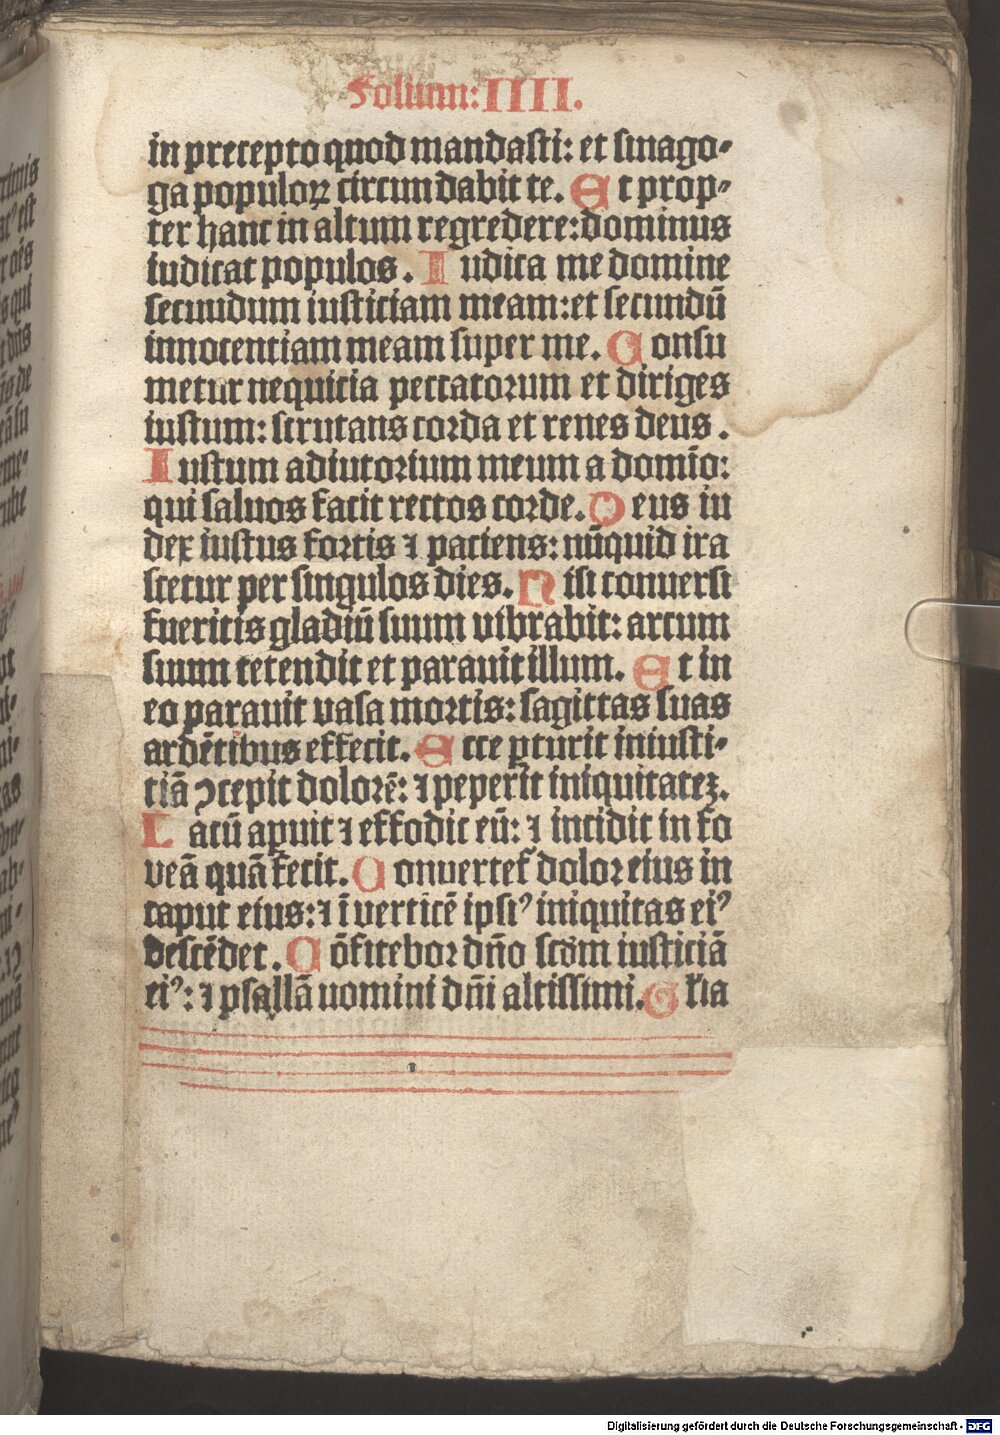 Folium: IIII.
in precepto quod mandasti: et sinago-
ga populoꝝ circundabit te. Et prop-
ter hanc in altum regredere: dominus
iudicat populos. Iudica me domine
secundum iusticiam meam: et secundū
innocentiam meam super me. Consu
metur nequicia peccatorum et diriges
iustum: scrutans corda et renes deus.
Iustum adiutorium meum a domīo:
qui saluos facit rectos corde. Deus iu
dex iustus fortis ⁊ paciens: nūquid ira
scetur per singulos dies. Nisi conuersi
fueritis gladiū suum vibrabit: arcum
suum tetendit et parauit illum. Et in
eo parauit vasa mortis: sagittas suas
ardētibus effecit. Ecce ꝑturit iniusti-
tiā ꝯcepit dolorē: ⁊ peperit iniquitateꝫ.
Lacū apuit ⁊ effodit eū: ⁊ incidit in fo
veā quā fecit. Conuertet᷑ dolor eius in
caput eius: ⁊ ī verticē ipsiꝰ iniquitas eiꝰ
descēdet. Cōfitebor dn̄o scd̄m iusticiā
eiꝰ: ⁊ psallā nomini dn̄i altissimi. Gl̄ia
Digitalisierung gefördert durch die Deutsche Forschungsgemeinschaft - DFG